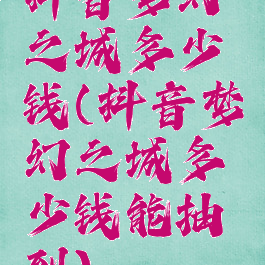 抖音梦幻
之城多少
钱(抖音梦
幻之城多
少钱能抽
到)